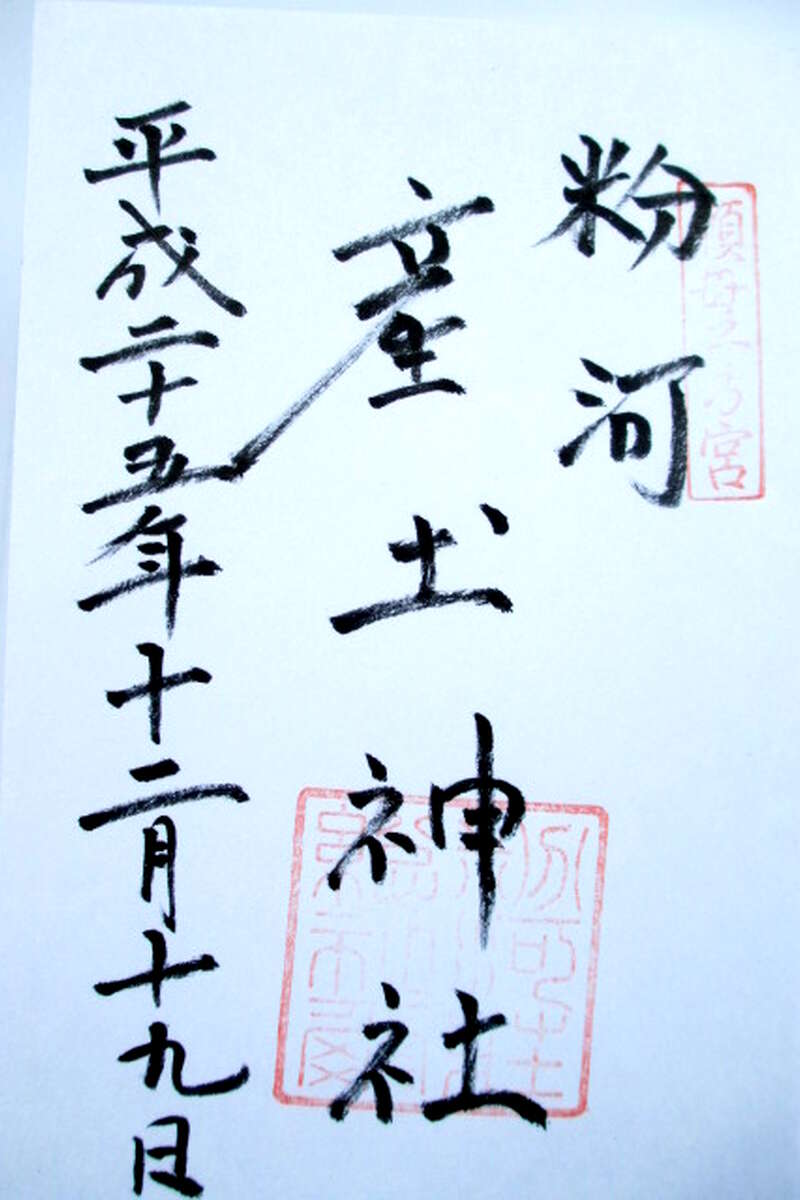 粉河
産土神社
平成二十五年十二月十九日